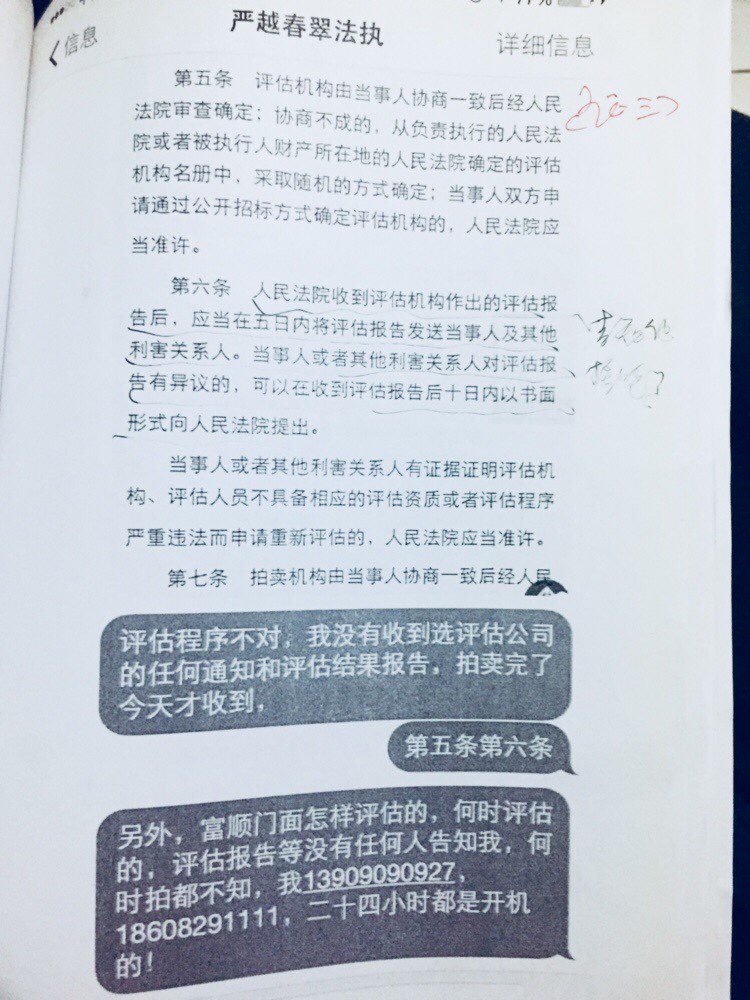 信息
严越春翠法执
详细信息
第五条 评估机构由当事人协商一致后经人民
法院审查确定；协商不成的，从负责执行的人民法
院或者被执行人财产所在地的人民法院确定的评估
机构名册中，采取随机的方式确定；当事人双方申
请通过公开招标方式确定评估机构的，人民法院应
当准许。
第六条 人民法院收到评估机构作出的评估报
告后，应当在五日内将评估报告发送当事人及其他
利害关系人。当事人或者其他利害关系人对评估报
告有异议的，可以在收到评估报告后十日内以书面
形式向人民法院提出。
当事人或者其他利害关系人有证据证明评估机
构、评估人员不具备相应的评估资质或者评估程序
严重违法而申请重新评估的，人民法院应当准许。
第七条 拍卖机构由当事人协商一致后经人民
评估程序不对，我没有收到选评估公司
的任何通知和评估结果报告，拍卖完了
今天才收到，
第五条第六条
另外，富顺门面怎样评估的，何时评估
的，评估报告等没有任何人告知我，何
时拍都不知，我13909090927，
18608291111，二十四小时都是开机
的！